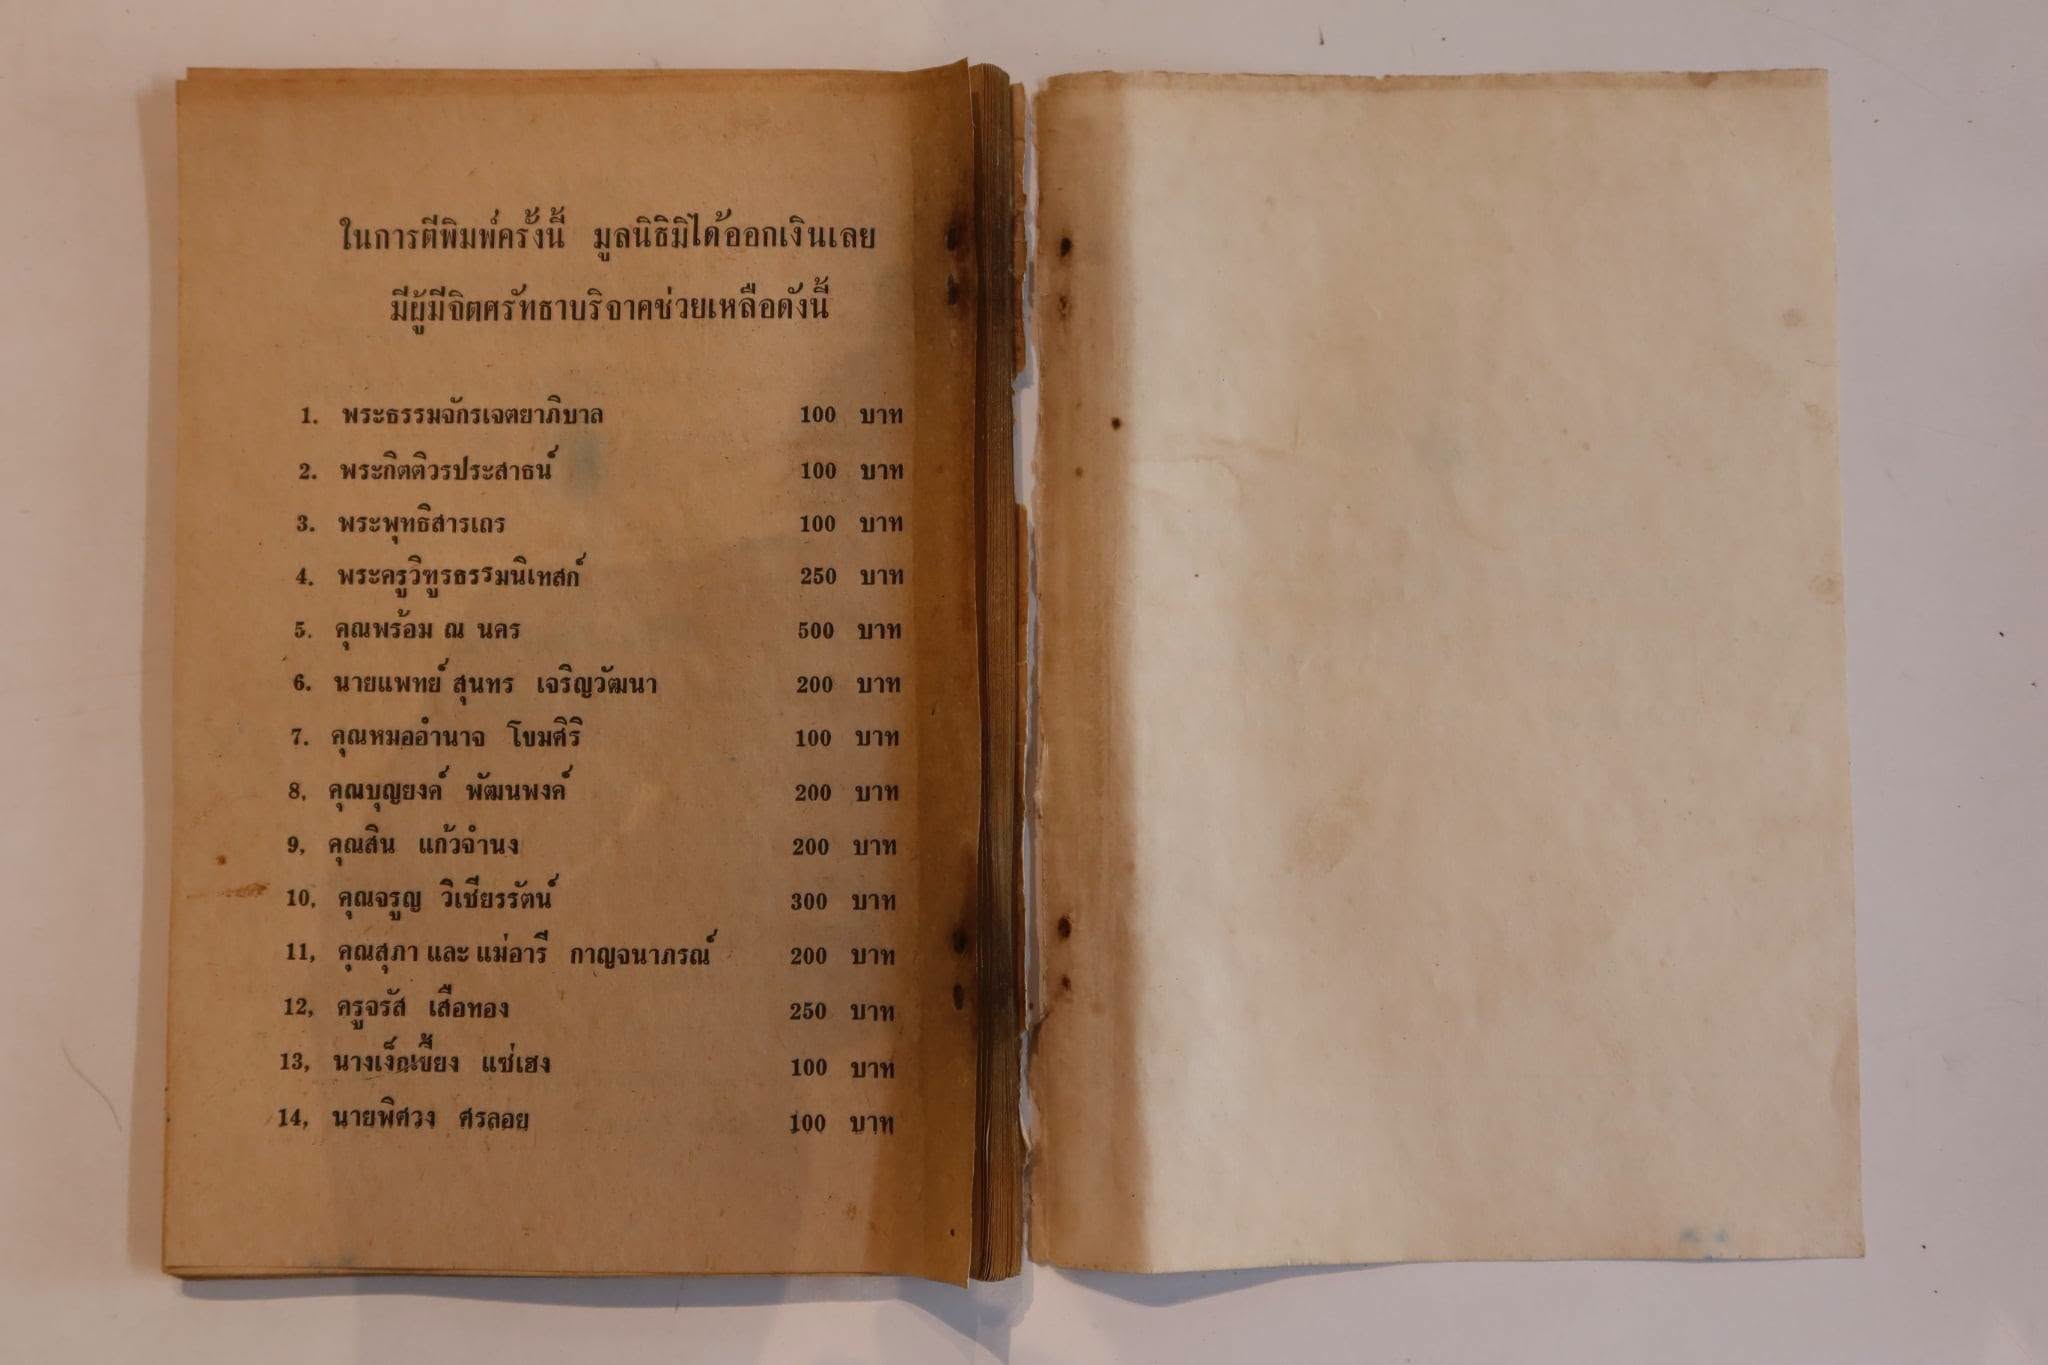 ในการตีพิมพ์ครั้งนี้ มูลนิธิมิได้ออกเงินเลย
มีผู้มีจิตศรัทธาบริจาคช่วยเหลือดังนี้
1. พระธรรมจักรเจตยาภิบาล 100 บาท
2. พระกิตติวรประสาธน์ 100 บาท
3. พระพุทธิสารเถร 100 บาท
4. พระครูวิฑูรธรรมนิเทสก์ 250 บาท
5. คุณพร้อม ณ นคร 500 บาท
6. นายแพทย์ สุนทร เจริญวัฒนา 200 บาท
7. คุณหมออำนาจ โขมศิริ 100 บาท
8, คุณบุญยงค์ พัฒนพงค์ 200 บาท
9, คุณสิน แก้วจำนง 200 บาท
10, คุณจรูญ วิเชียรรัตน์ 300 บาท
11, คุณสุภา และ แม่อารี กาญจนาภรณ์ 200 บาท
12, ครูจรัส เสือทอง 250 บาท
13, แซ่เฮง 100 บาท
14, นายพิศวง ศรลอย 100 บาท